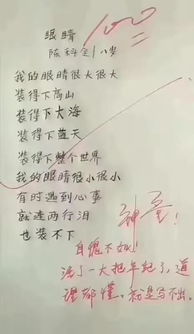 眼睛
100
陈科全 八岁
我的眼睛很大很大
装得下高山
装得下大海
装得下蓝天
装得下整个世界
我的眼睛很小很小
有时遇到心事
就连两行泪
也装不下
神童!
自愧不如!
活了一大把年纪了,道
理都懂。和是写不出